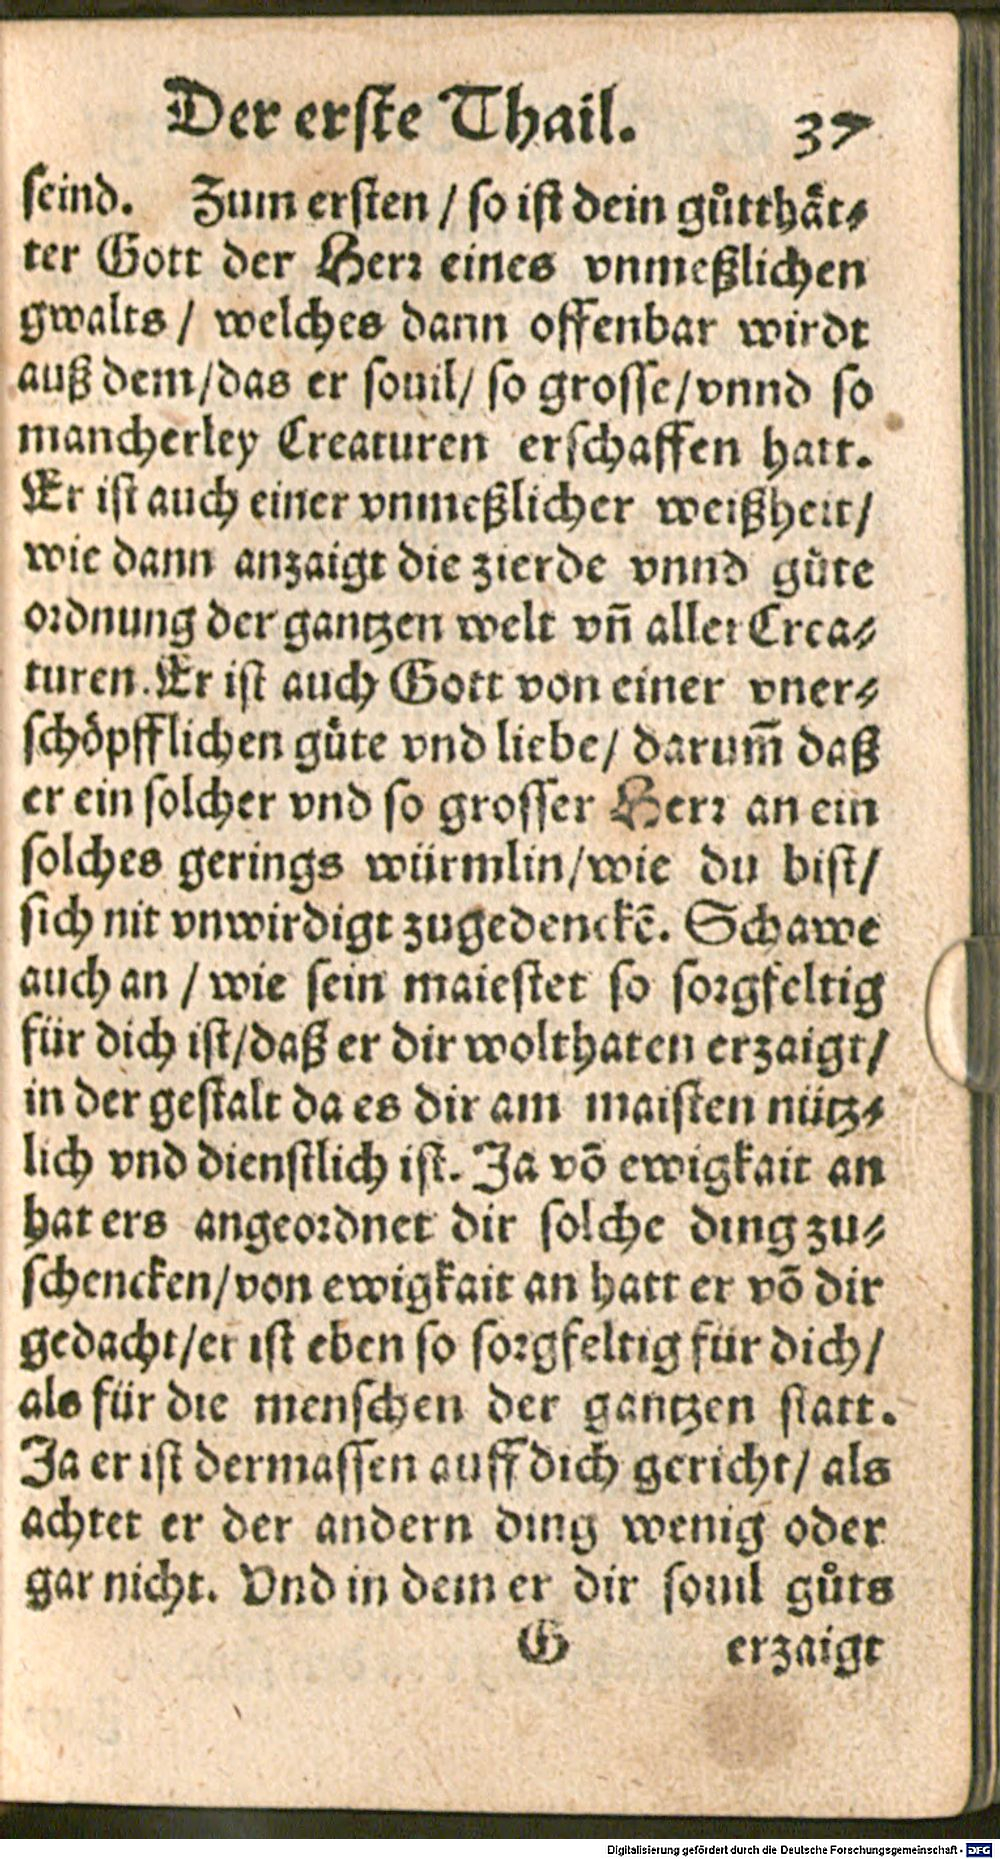 Der erste Thail. 37
seind. Zum ersten / so ist dein gůtthaͤt⸗
ter Gott der Herr eines vnmeßlichen
gwalts / welches dann offenbar wirdt
auß dem/das er souil/ so grosse/vnnd so
mancherley Creaturen erschaffen hatt.
Er ist auch einer vnmeßlicher weißheit/
wie dann anzaigt die zierde vnnd gůte
ordnung der gantzen welt vñ aller Crea⸗
turen. Er ist auch Gott von einer vner⸗
schoͤpfflichen guͤte vnd liebe/ darum̃ daß
er ein solcher vnd so grosser Herr an ein
solches gerings würmlin/wie du bist/
sich nit vnwirdigt zugedenckẽ. Schawe
auch an / wie sein maiestet so sorgfeltig
für dich ist/daß er dir wolthaten erzaigt/
in der gestalt da es dir am maisten nütz⸗
lich vnd dienstlich ist. Ja võ ewigkait an
hat ers angeordnet dir solche ding zu⸗
schencken/von ewigkait an hatt er võ dir
gedacht/er ist eben so sorgfeltig für dich/
als für die menschen der gantzen statt.
Ja er ist dermassen auff dich gericht/ als
achtet er der andern ding wenig oder
gar nicht. Vnd in dem er dir souil gůts
G erzaigt
Digitalisierung gefördert durch die Deutsche Forschungsgemeinschaft - DFG